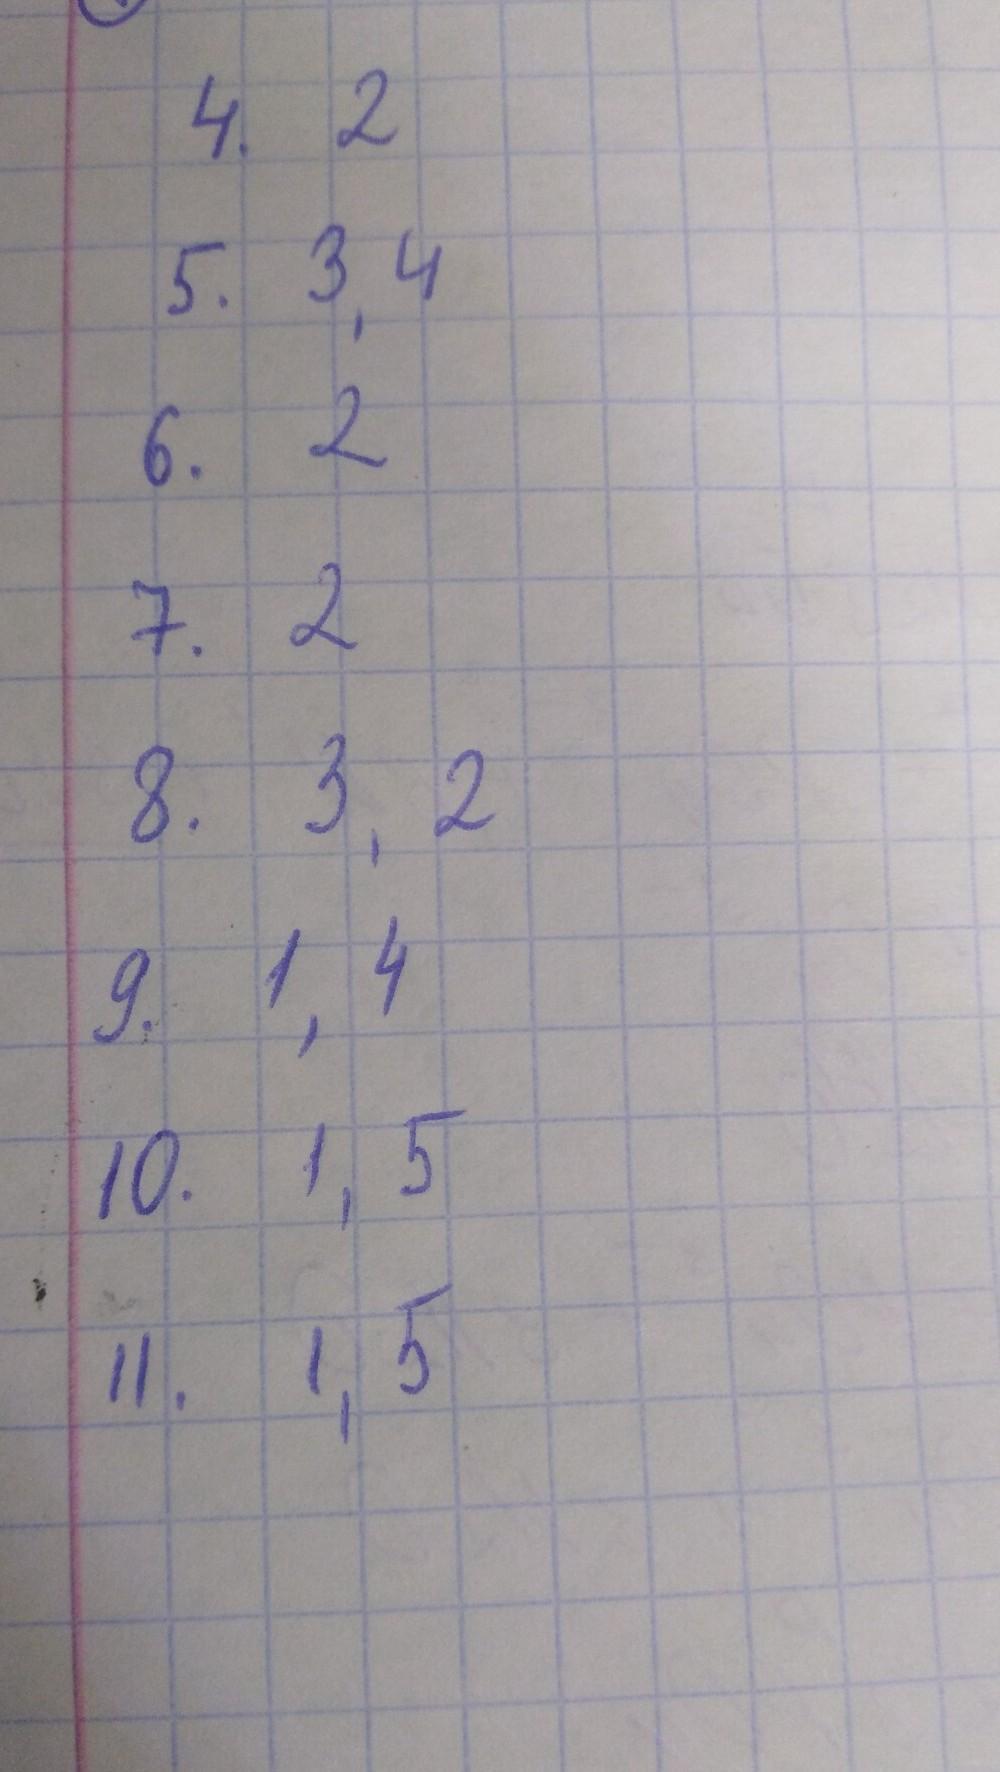 4. 2
5. 3, 4
6. 2
7. 2
8. 3, 2
9. 1, 4
10. 1, 5
11. 1, 5